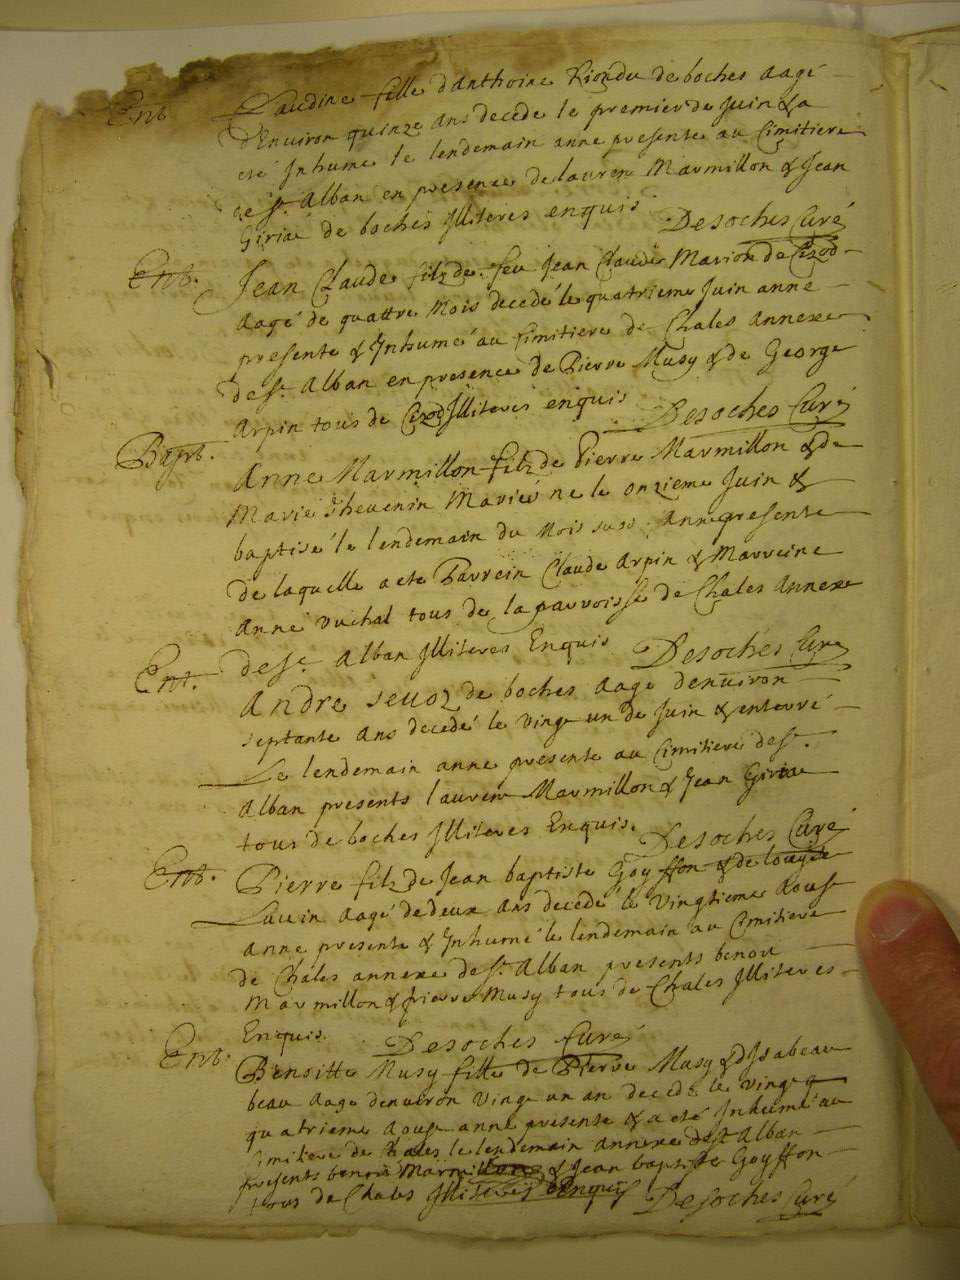 Ent. Claudine fille d'Anthoine Riondu de boches aagé
d'Enuiron quinze ans decede le premier de Juin & a
eté Inhume le lendemain anne presente au Cimitiere
de St. Alban en presence de lauren Marmillon & Jean
Giriat de boches Illiteres enquis Desoches Curé
Ent. Jean Claude filz de feu Jean Claude Marion de Cizod
aagé de quattre Mois decedé le quatrieme Juin anne
presente & Inhumé au Cimitiere de Chales Annexe
de St. Alban en presence de Pierre Musy & de George
Arpin tous de Cizod Illiteres enquis Desoches Curé
Bapt. Anne Marmillon filz de Pierre Marmillon & de
Marie Thevenin Mariés ne le onzieme Juin &
baptisé le lendemain du Mois susd. Anne presente
de laquelle a ete Parrein Claude Arpin & Marreine
Anne vuchal tous de la parroisse de Chales Annexe
de St. Alban Illiteres Enquis Desoches Curé
Ent. Andre Seuoz de boches aage denuiron
septante ans decedé le vingt un de Juin & enterré
Le lendemain anne presente au Cimitiere de St.
Alban presents lauren Marmillon & Jean Giriat
tous de boches Illiteres Enquis. Desoches Curé
Ent. Pierre filz de Jean baptiste Goyffon & de
aagé de deux ans decedé le vingtieme aoust
anne presente & Inhumé le lendemain au Cimitiere
de Chales annexe de St. Alban presents benoit
Marmillon & pierre Musy tous de Chales Illiteres
Enquis. Desoches Curé
Ent. Benoitte Musy fille de Pierre Musy & d'Isabeau
beau aage denuiron vingt un an decede le vingt
quatrieme aoust anne presente & a eté Inhumé au
Cimitiere de Chales le lendemain annexe de St Alban
presents benoit Marmillon & Jean baptiste Goyffon
tous de Chales Illiteres Enquis Desoches Curé